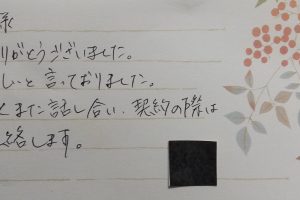 様
りがとうございました。
しいと言っておりました。
くまた話し合い、契約の際は
絡します。